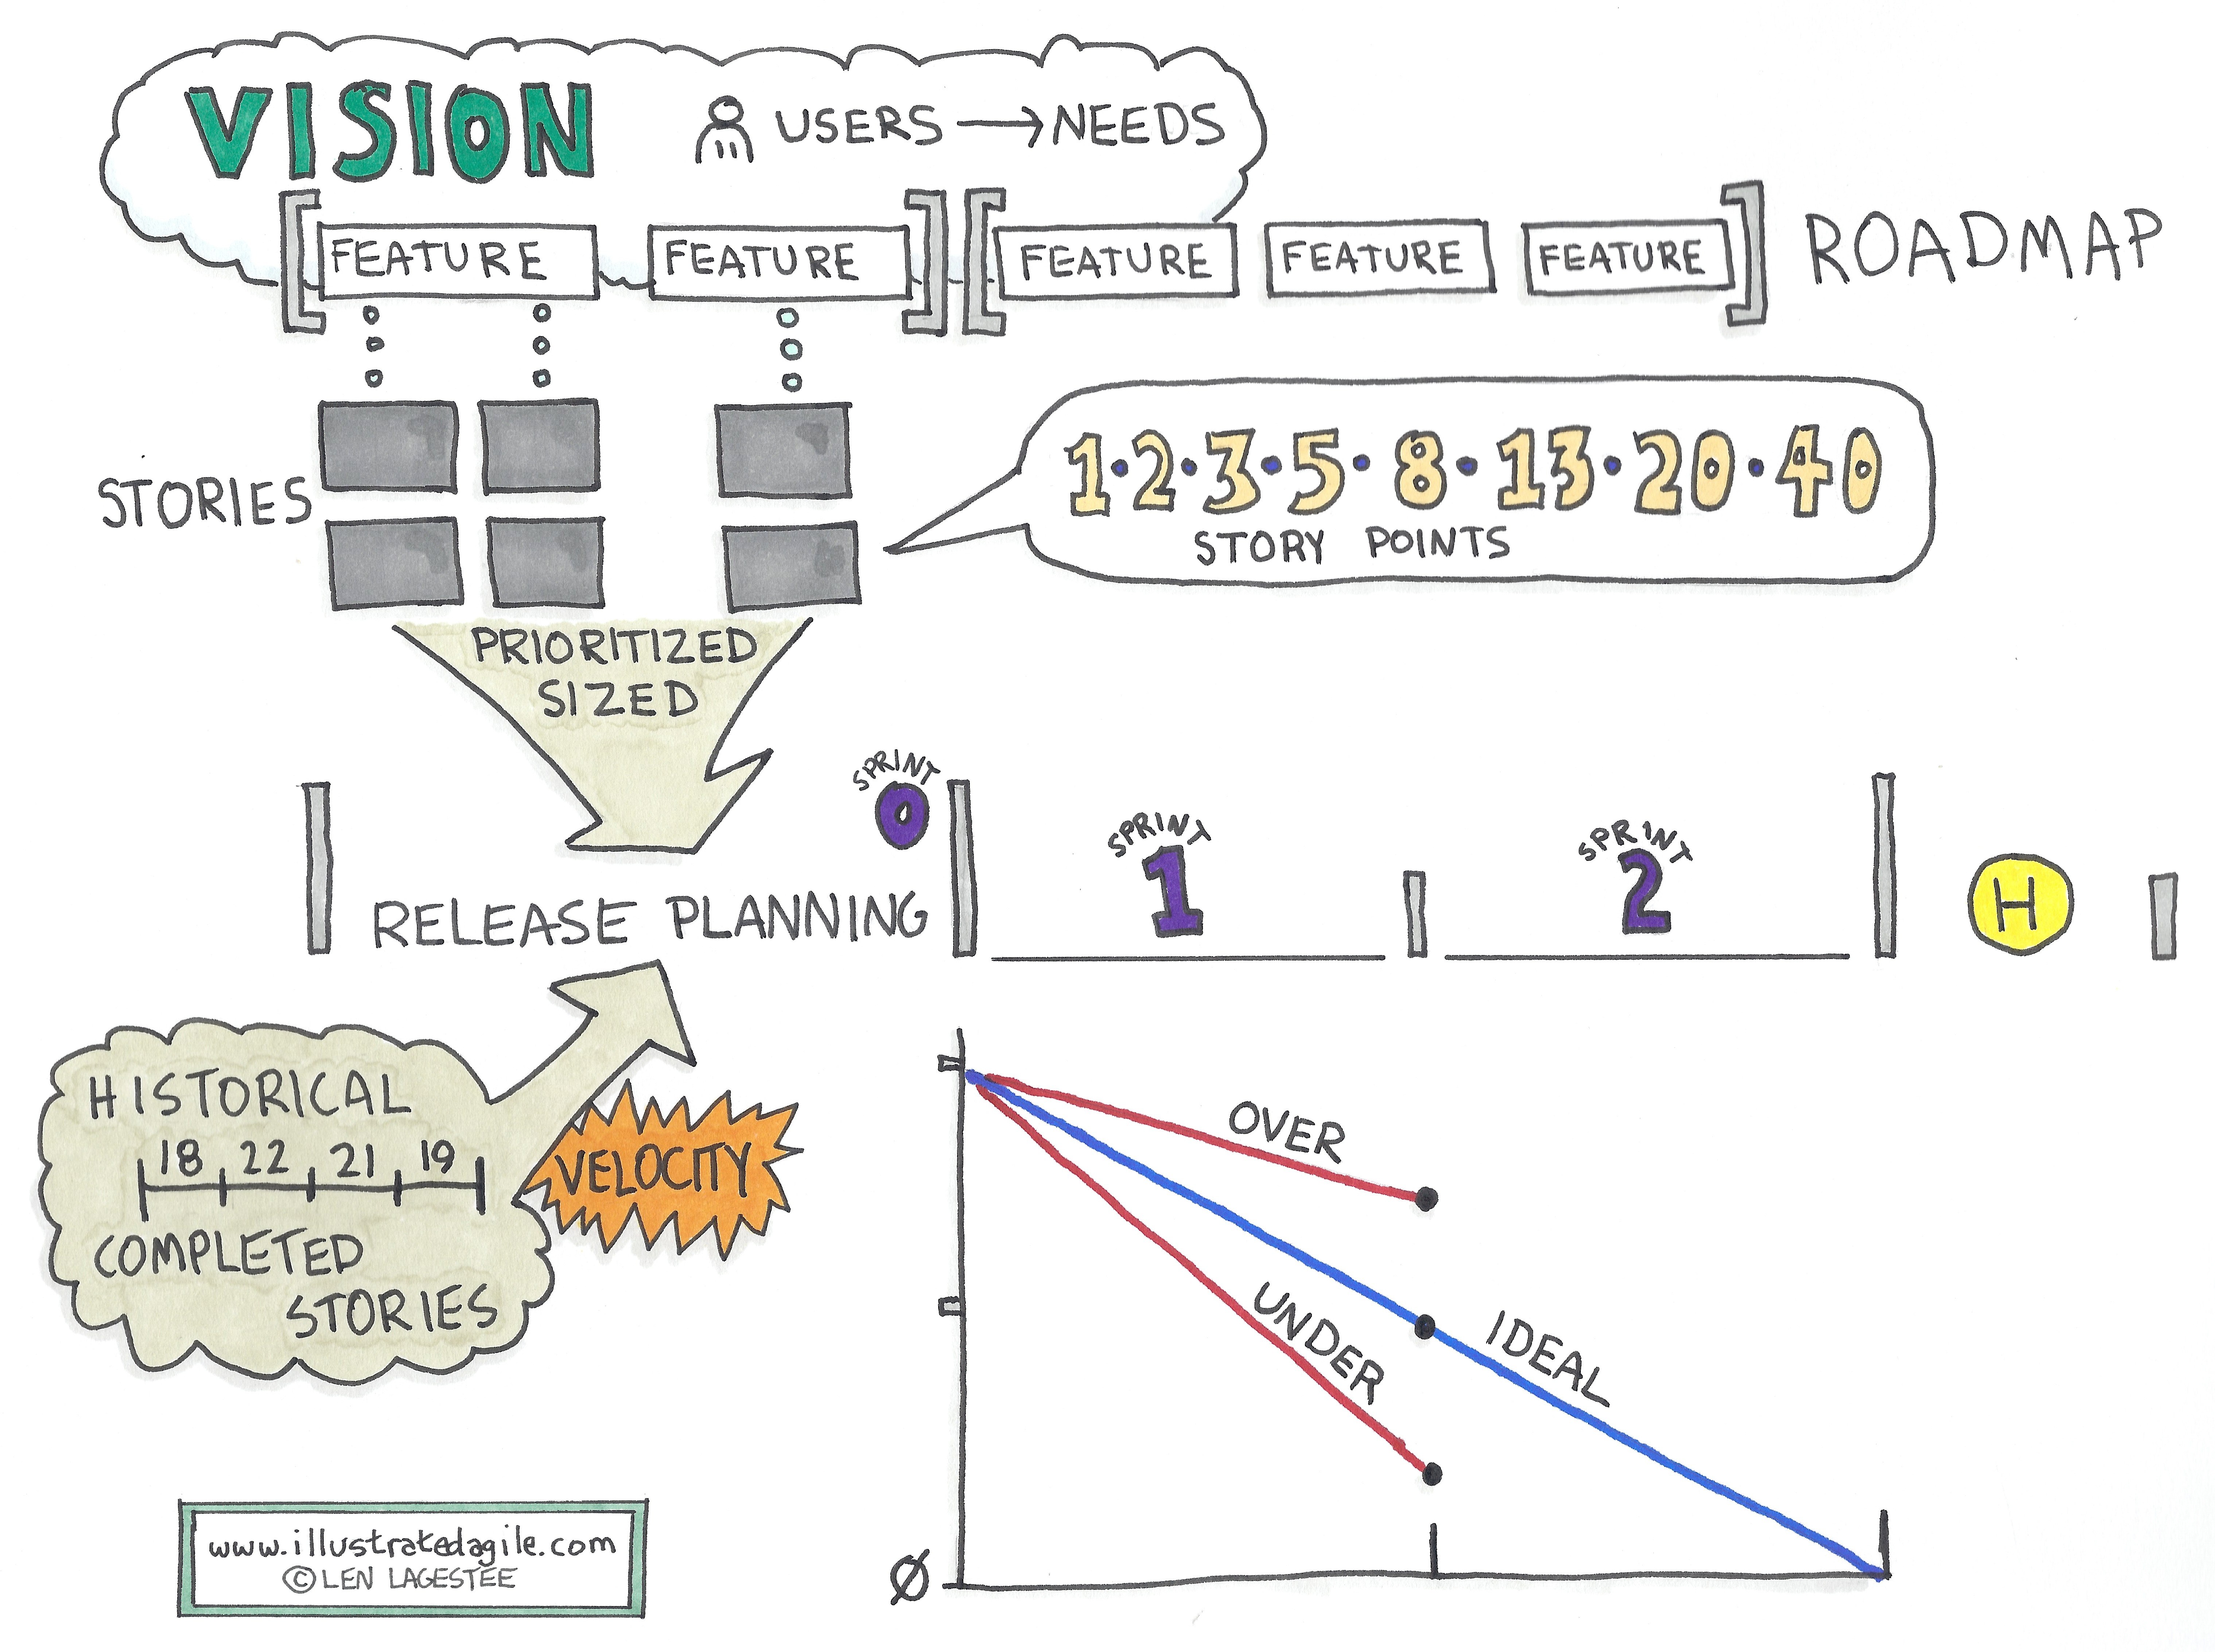 VISION
USERS → NEEDS
FEATURE
FEATURE
FEATURE
FEATURE
FEATURE
ROADMAP
STORIES
1 • 2 • 3 • 5 • 8 • 13 • 20 • 40
STORY POINTS
PRIORITIZED
SIZED
SPRINT
0
SPRINT
1
SPRINT
2
H
RELEASE PLANNING
HISTORICAL
18 22 21 19
COMPLETED
STORIES
VELOCITY
OVER
UNDER
IDEAL
Ø
www.illustratedagile.com
© LEN LAGESTEE